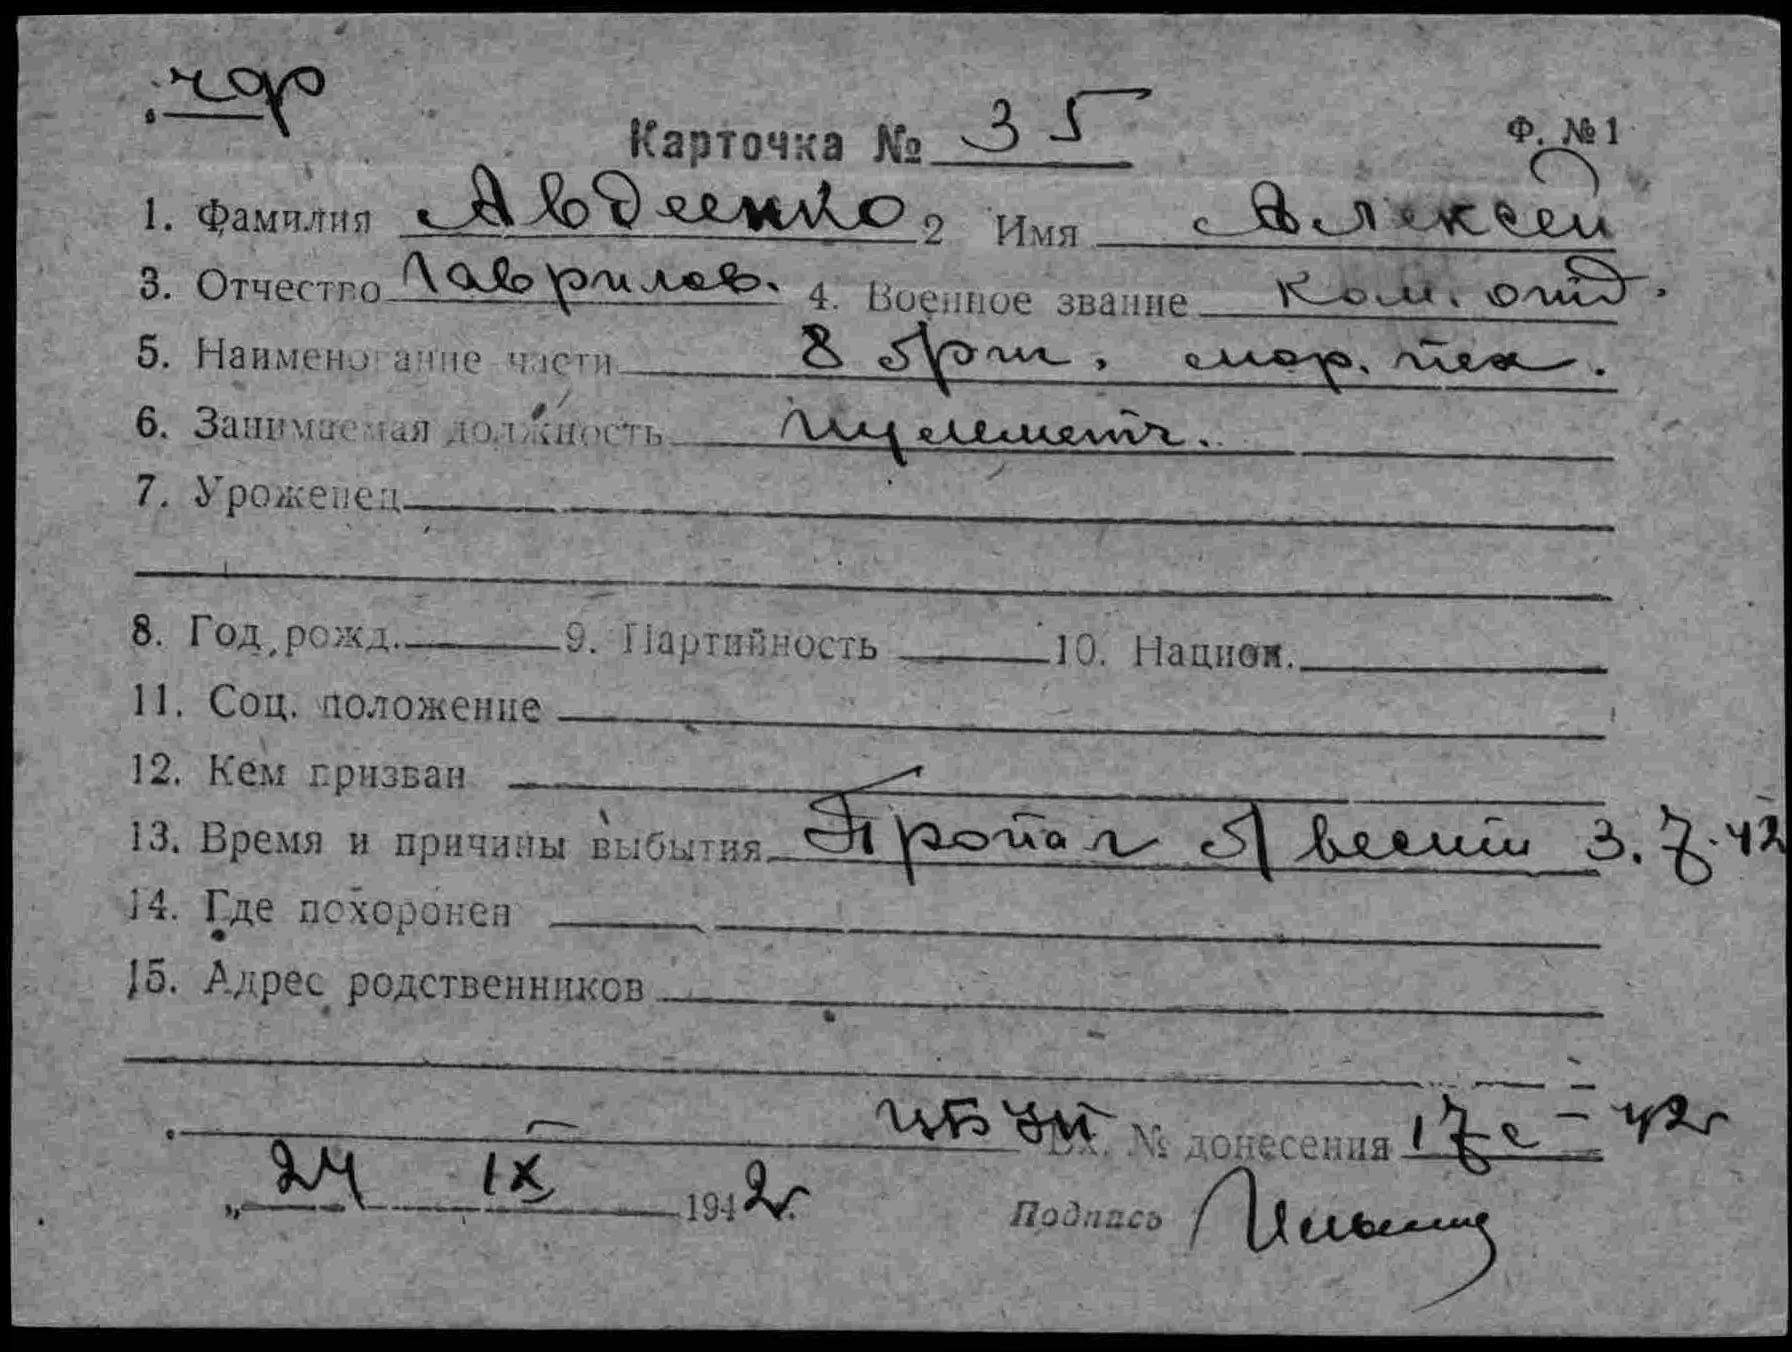 чф
Карточка № 35
Ф. № 1
1. Фамилия Авдеенко 2 Имя Алексей
3. Отчество Гаврилов. 4. Военное звание Ком. отд.
5. Наименование части 8 бриг. мор. пех.
6. Занимаемая должность пулеметч.
7. Уроженец
8. Год рожд. 9. Партийность 10. Национ.
11. Соц. положение
12. Кем призван
13. Время и причины выбытия Пропал б/вести 3.7.42
14. Где похоронен
15. Адрес родственников
Вх. № донесения 17с – 42г
„24 IX 1942г.
Подпись